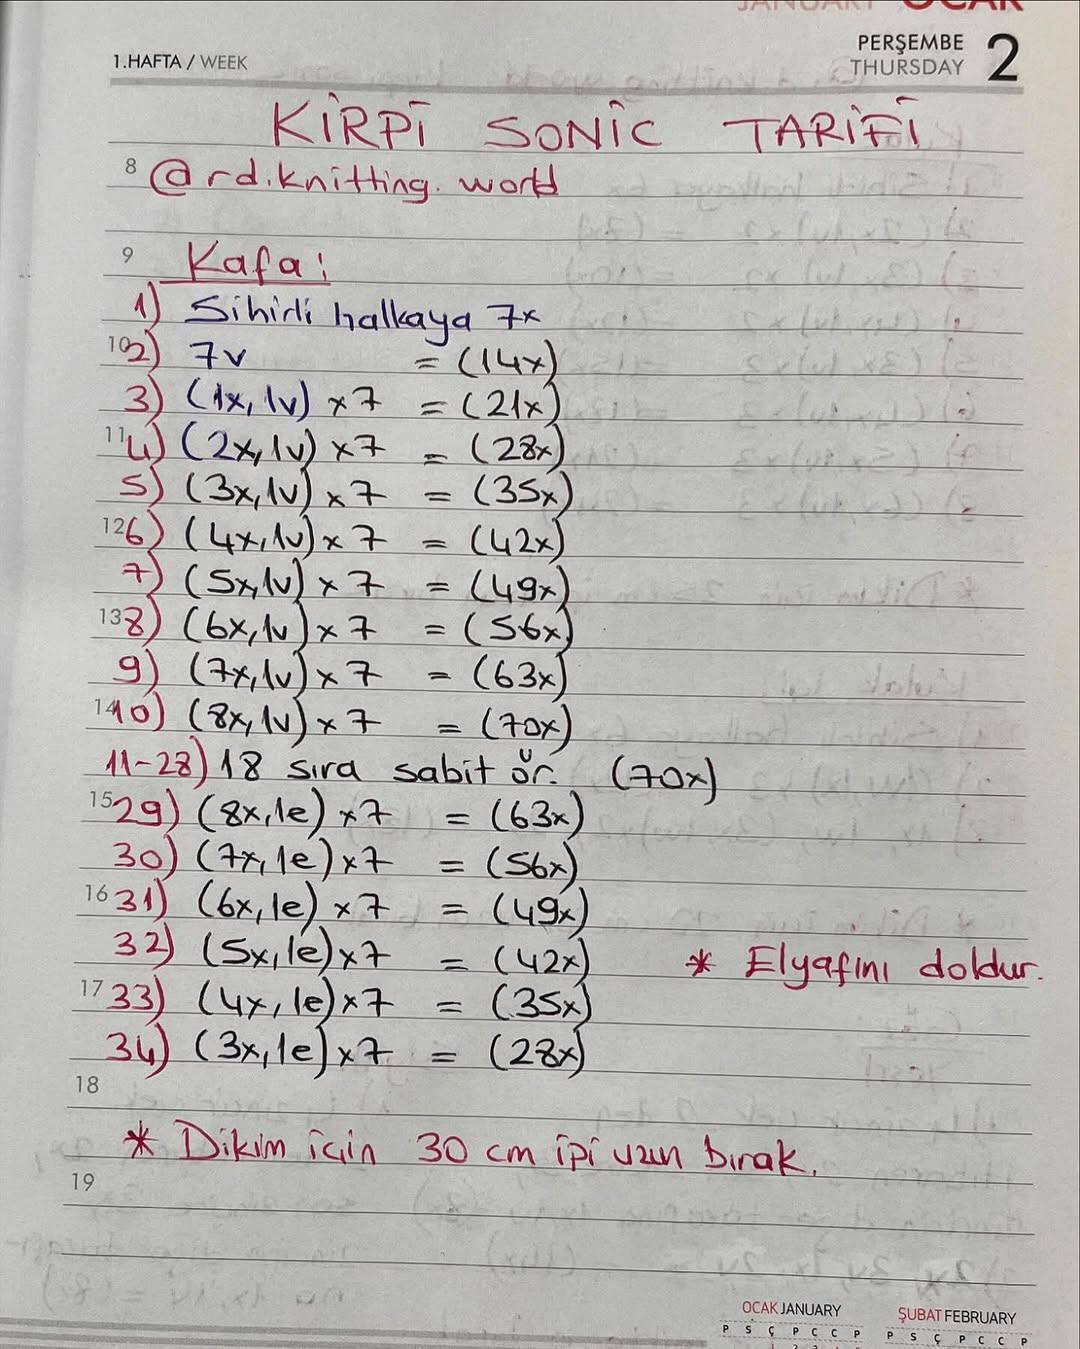 JANUARY OCAK
1.HAFTA / WEEK PERŞEMBE THURSDAY 2
KİRPİ SONİC TARİFİ
8 @rd.knitting.world
9 Kafa:
1) Sihirli halkaya 7x
10 2) 7v = (14x)
3) (1x, 1v) x 7 = (21x)
11 4) (2x, 1v) x 7 = (28x)
5) (3x, 1v) x 7 = (35x)
12 6) (4x, 1v) x 7 = (42x)
7) (5x, 1v) x 7 = (49x)
13 8) (6x, 1v) x 7 = (56x)
9) (7x, 1v) x 7 = (63x)
14 10) (8x, 1v) x 7 = (70x)
11-28) 18 sıra sabit ör. (70x)
15 29) (8x, 1e) x 7 = (63x)
30) (7x, 1e) x 7 = (56x)
16 31) (6x, 1e) x 7 = (49x)
32) (5x, 1e) x 7 = (42x) * Elyafını doldur.
17 33) (4x, 1e) x 7 = (35x)
34) (3x, 1e) x 7 = (28x)
18
* Dikim için 30 cm ipi uzun bırak.
19
OCAK JANUARY ŞUBAT FEBRUARY
P S Ç P C C P P S Ç P C C P